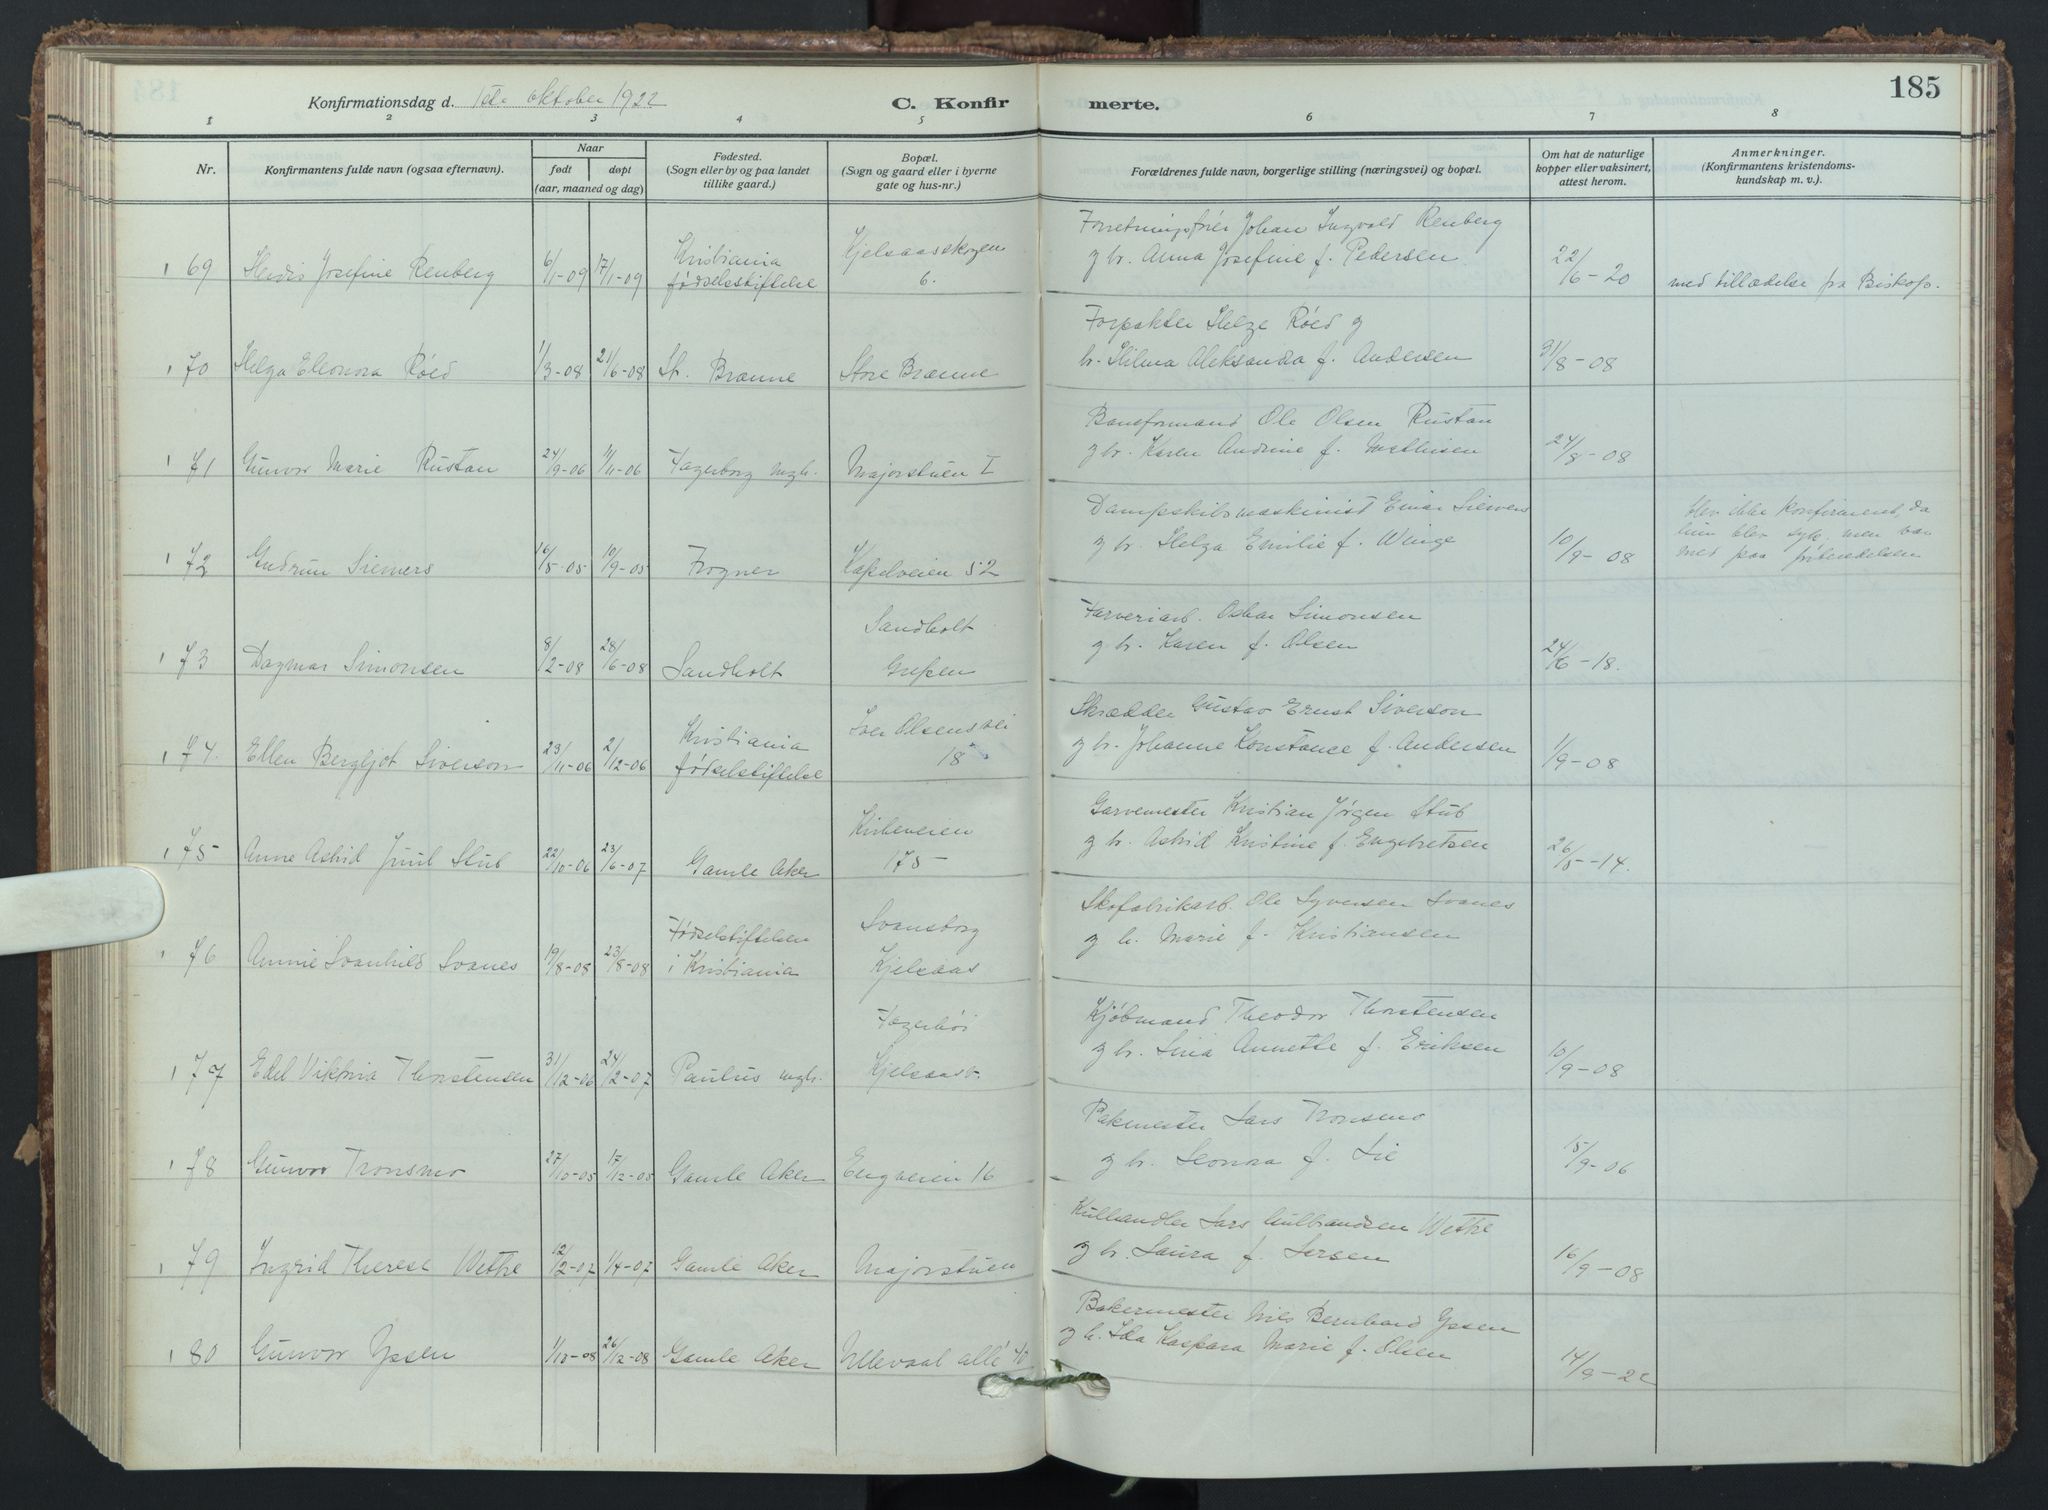 185
Konfirmationsdag d. 1ste oktober 1922 C. Konfirmerte.
1 2 3 4 5 6 7 8
Nr. Konfirmantens fulde navn (ogsaa efternavn). Naar født døpt (aar, maaned og dag) Fødested. (Sogn eller by og paa landet tillike gaard.) Bopæl. (Sogn og gaard eller i byerne gate og hus-nr.) Forældrenes fulde navn, borgerlige stilling (næringsvei) og bopæl. Om hat de naturlige kopper eller vaksinert, attest herom. Anmerkninger. (Konfirmantens kristendoms-kundskap m. v.).
69 Herdis Josefine Renberg 6/1-09 17/1-09 Kristiania fødselsstiftelse Kjelsaasskogen 6. Forretningsfører Johan Ingvald Renberg
g hr. Anna Josefine f. Pedersen 22/6-20 med tilladelse fra Biskop.
70 Helga Eleonora Røed 1/3-08 21/6-08 St. Brænne Store Brænne Forpakter Helge Røed g
hr. Hilma Aleksandra f. Andersen 31/8-08
71 Gunvor Marie Rustan 24/9-06 11/11-06 Fagerborg mgh. Majorstuen I Baneformand Ole Olsen Rustan
g hr. Karen Andrine f. Mathisen 24/8-08
72 Gudrun Siewers 16/5-05 10/9-05 Frogner Kapelveien 52 Dampskibsmaskinist Einar Siewers
g hr. Helga Emilie f. Winge 10/9-08 blev ikke konfirmeret, da
hun blev syk, men var
med paa
73 Dagmar Simonsen 8/2-08 28/6-08 Sandholt Sandholt Grefsen Farveriarb. Oskar Simonsen
g hr. Karen f. Olsen 24/6-18.
74. Ellen Bergljot Siverson 23/11-06 2/12-06 Kristiania fødselsstiftelse Iver Olsens vei 18 Skrædder Gustav Ernst Siverson
g hr. Johanne Konstance f. Andersen 1/9-08
75 Anne Astrid Juul Stub 22/10-06 23/6-07 Gamle Aker Kirkeveien 175 Garvemester Kristian Jørgen Stub
g hr. Astrid Kristine f. Engebretsen 26/5-14.
76 Annie Svanhild Svanes 19/8-08 23/8-08 Fødselsstiftelsen i Kristiania Svansborg Kjelsaas Skofabrikarb. Ole Syversen Svanes
g h. Marie f. Kristiansen
77 Edel Viktoria Thorstensen 31/12-06 24/12-07 Paulus mgh. Fagerhøi Kjelsaas Kjøbmand Theodor Thorstensen
g hr. Lina Annette f. Eriksen 10/9-08
78 Gunvor Tronsmo 27/10-05 17/12-05 Gamle Aker Engveien 16 Pakmester Lars Tronsmo
g hr. Leonora f. Lie 15/9-06
79 Ingrid Therese Wethe 12/2-07 1/4-07 Gamle Aker Majorstuen Kulhandler Lars Gulbrandsen Wethe
g hr. Laura f. Larsen 16/9-08
80 Gunvor Yssen 1/10-08 26/12-08 Gamle Aker Ullevaal allé 40 Bakermester Nils Bernhard Yssen
g h. Ida Kaspara Marie f. Olsen 14/9-22